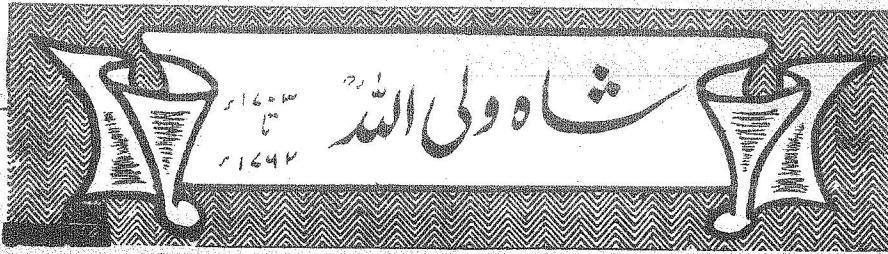 شاہ ولی اللہؒ
۱۷۰۳ء
تا
۱۷۶۲ء